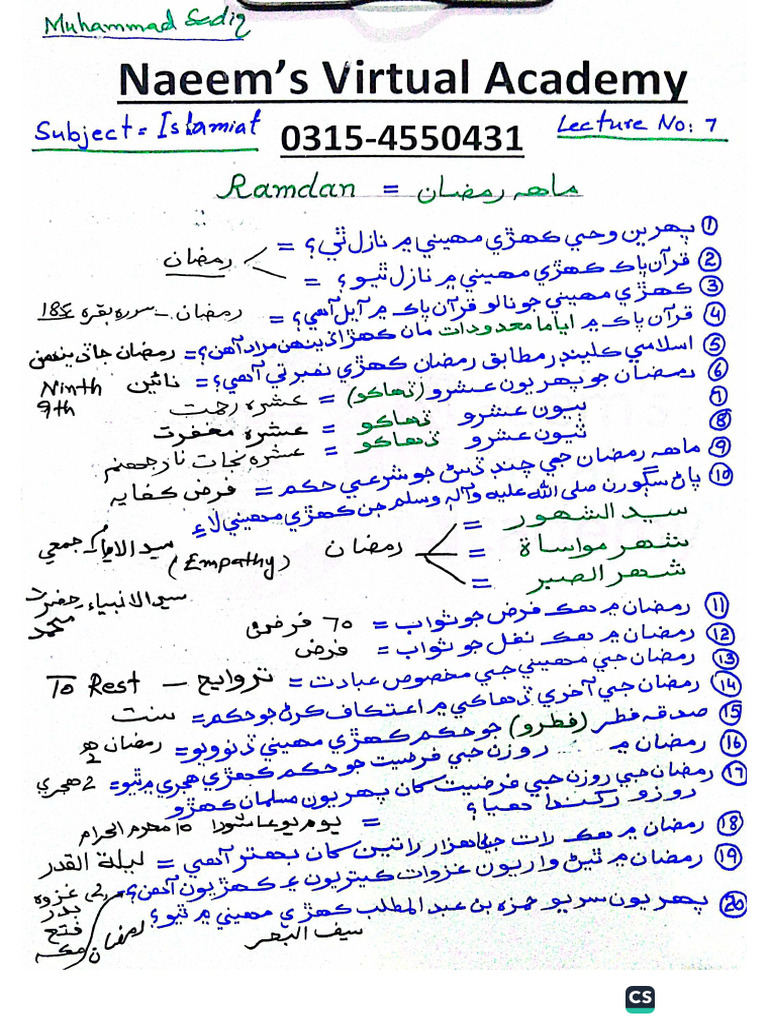 Muhammad Sadiq
Naeem's Virtual Academy
Subject = Islamiat
0315-4550431
Lecture No: 7
Ramdan = ماهه رمضان
① پهرين وحي ڪهڙي مهيني ۾ نازل ٿي؟ =
② قرآن پاڪ ڪهڙي مهيني ۾ نازل ٿيو؟ = رمضان
③ ڪهڙي مهيني جو نالو قرآن پاڪ ۾ آيل آهي؟ = رمضان – سوره بقره 185
④ قرآن پاڪ ۾ اياما معدودات مان ڪهڙا ڏينهن مراد آهن؟ = رمضان جا ڏينهن
⑤ اسلامي ڪلينڊر مطابق رمضان ڪهڙي نمبر تي آهي؟ = نائين Ninth 9th
⑥ رمضان جو پهريون عشرو (ڏهاڪو) = عشره رحمت
⑦ ٻيون عشرو ڏهاڪو = عشره مغفرت
⑧ ٽيون عشرو ڏهاڪو = عشره نجات نار جهنم
⑨ ماهه رمضان جي چنڊ ڏسڻ جو شرعي حڪم = فرض ڪفايه
⑩ پاڻ سڳورن صلي الله عليه وآله وسلم جن ڪهڙي مهيني لاءِ
سيد الشهور =
شهر مواساة = رمضان (Empathy)
شهر الصبر =
سيد الايام جمعي
سيد الانبياء حضرت محمد
⑪ رمضان ۾ هڪ فرض جو ثواب = 70 فرض
⑫ رمضان ۾ هڪ نفل جو ثواب = فرض
⑬ رمضان جي مهيني جي مخصوص عبادت = تراويح – To Rest
⑭ رمضان جي آخري ڏهاڪي ۾ اعتڪاف ڪرڻ جو حڪم = سنت
⑮ صدقه فطر (فطرو) جو حڪم ڪهڙي مهيني ڏنو ويو = رمضان 2ھ
⑯ رمضان ۾ روزن جي فرضيت جو حڪم ڪهڙي هجري ۾ ٿيو = 2 هجري
⑰ رمضان جي روزن جي فرضيت کان پهريون مسلمان ڪهڙو
روزو رکندا هيا؟ = يوم عاشورا 10 محرم الحرام
⑱ رمضان ۾ هڪ رات جي هزار راتين کان بهتر آهي = ليلة القدر
⑲ رمضان ۾ ٿيڻ واريون غزوات ڪيتريون ۽ ڪهڙيون آهن؟ = غزوه بدر فتح مڪه
⑳ پهريون سريو حمزه بن عبد المطلب ڪهڙي مهيني ۾ ٿيو؟ رمضان
سيف البحر
CS